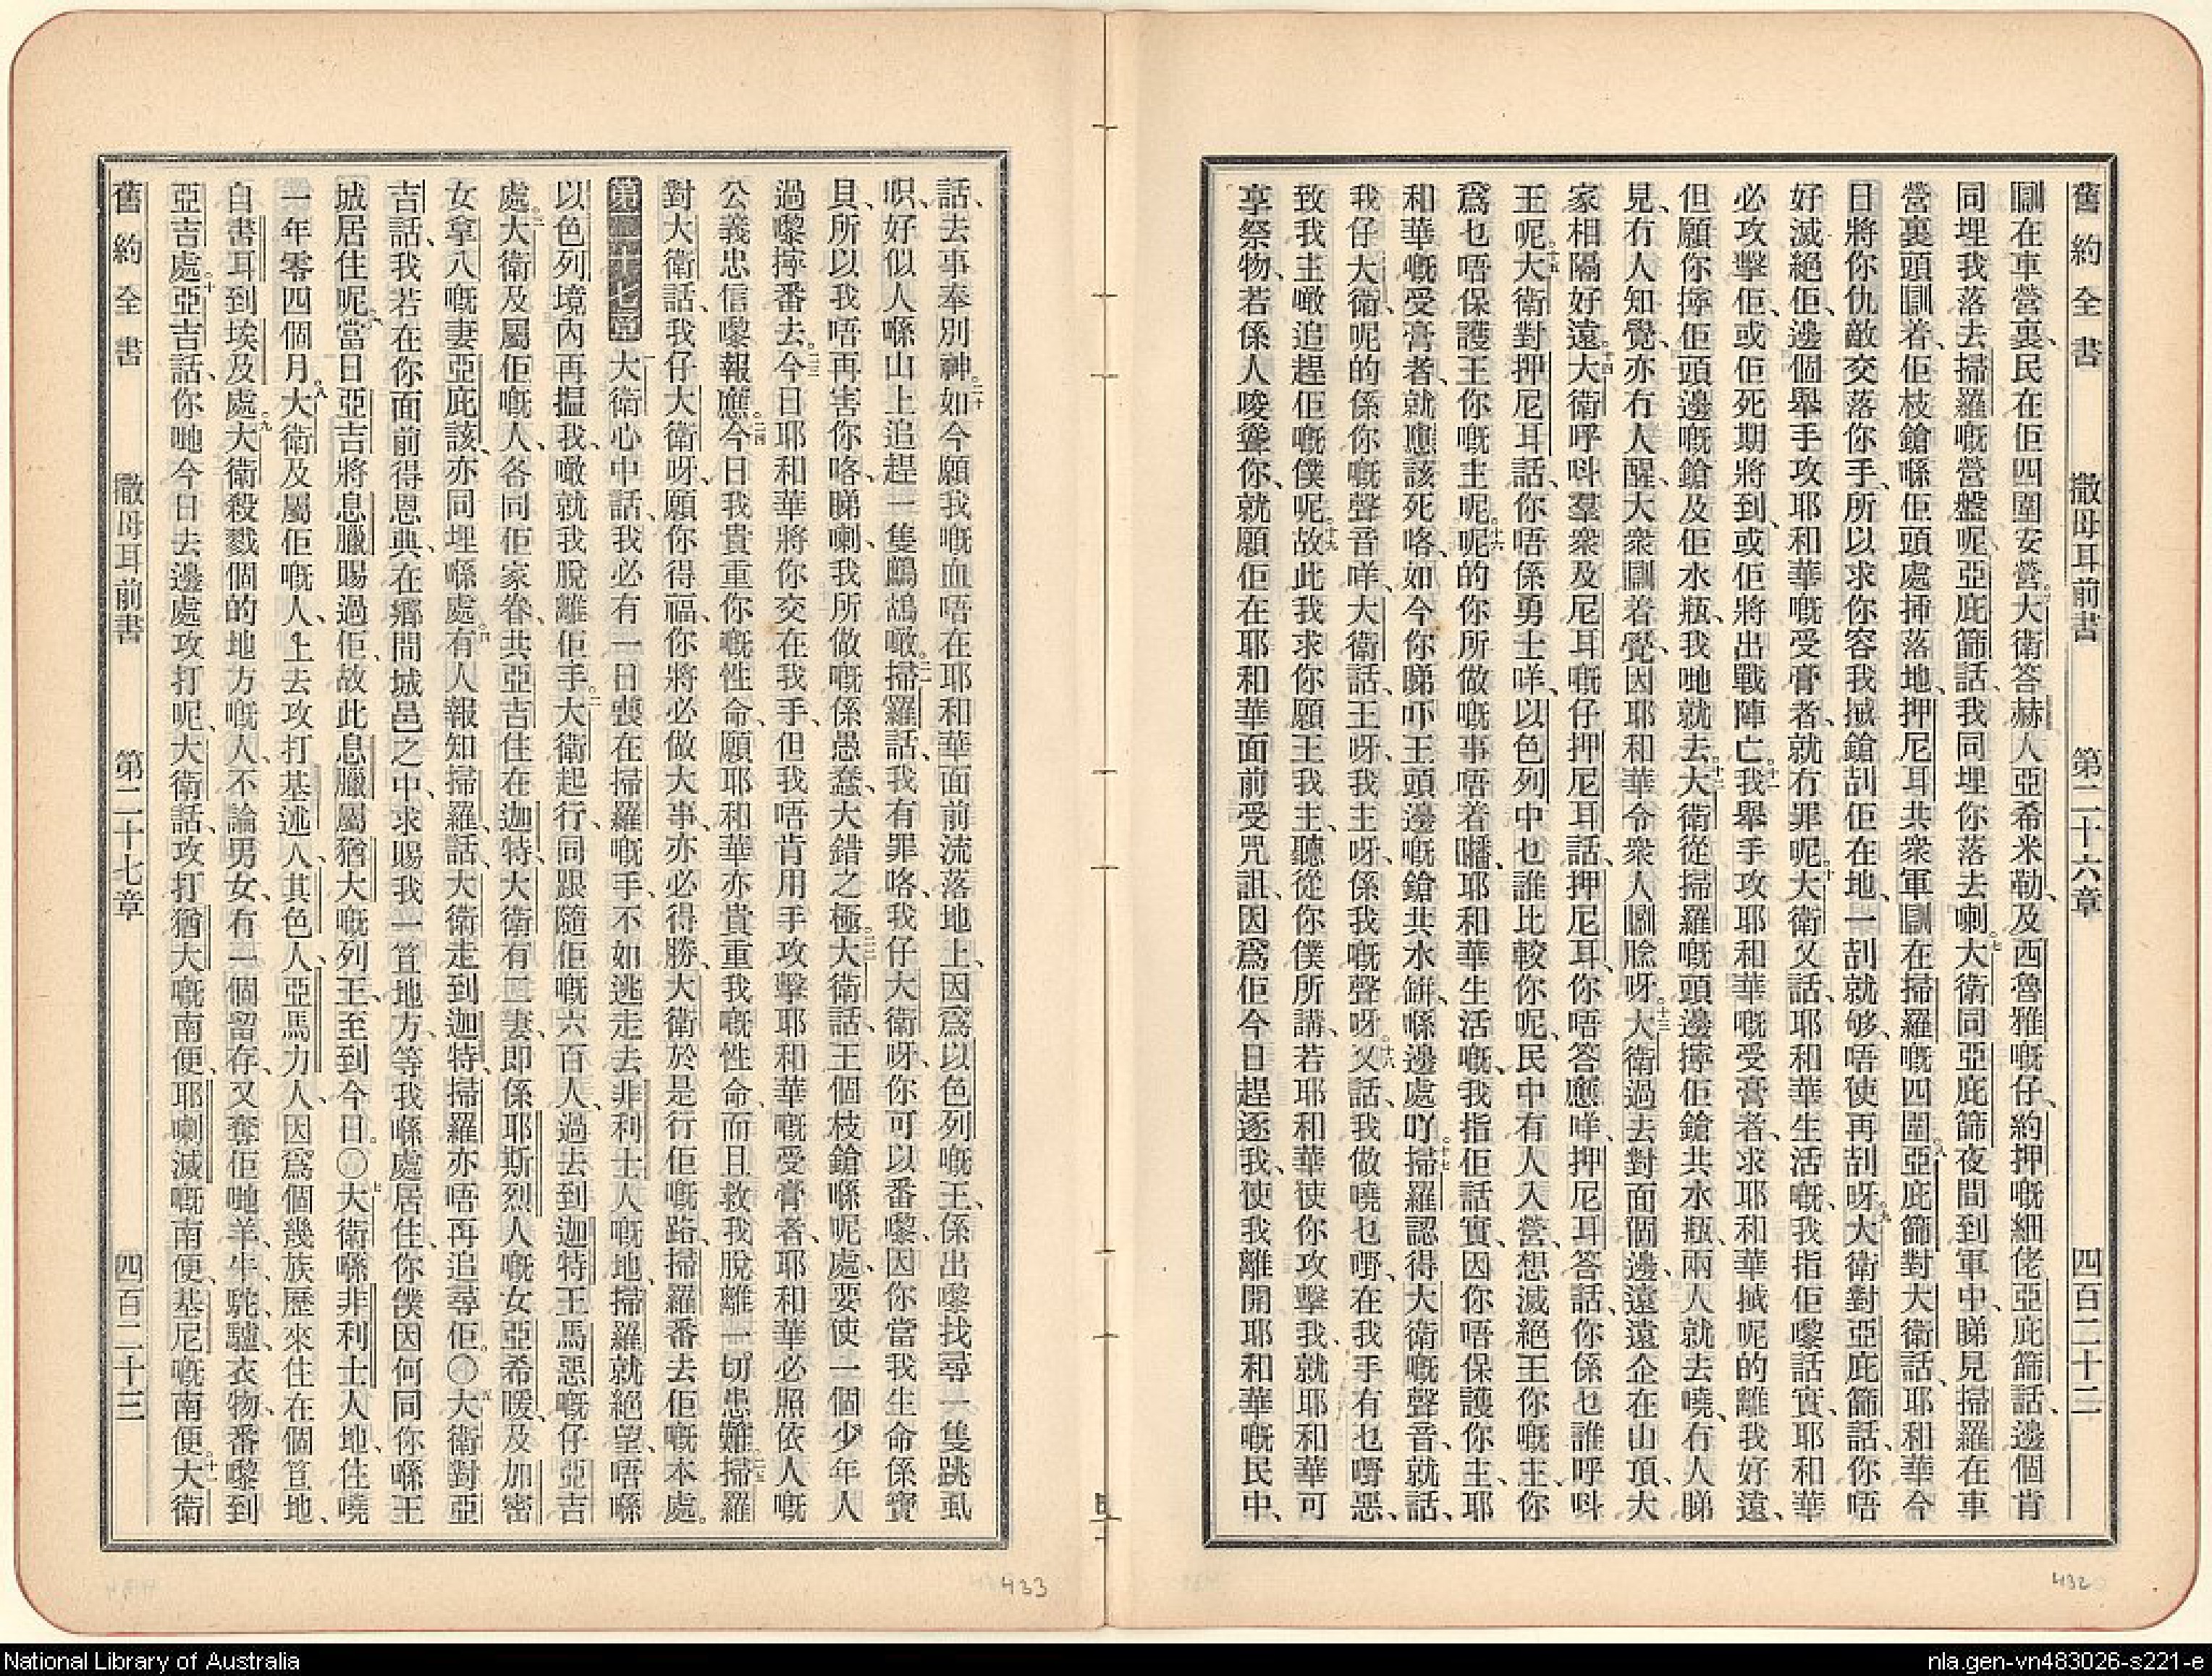 舊約全書 撒母耳前書 第二十六章 四百二十二
瞓在車營裏、民在佢四圍安營。大衛答赫人亞希米勒、及西魯雅嘅仔、約押嘅細佬亞庇篩話、邊個肯
同埋我落去掃羅嘅營盤呢、亞庇篩話、我同埋你落去喇。七大衛同亞庇篩夜間到軍中、睇見掃羅在車
營裏頭瞓着、佢枝鎗喺佢頭處揷落地、押尼耳共衆軍瞓在掃羅嘅四圍。八亞庇篩對大衛話、耶和華今
日將你仇敵交落你手、所以求你容我搣鎗㓤佢在地、一㓤就够、唔使再㓤呀。九大衛對亞庇篩話、你唔
好滅絕佢、邊個舉手攻耶和華嘅受膏者、就冇罪呢。十大衛又話、耶和華生活嘅、我指佢嚟話實、耶和華
必攻擊佢、或佢死期將到、或佢將出戰陣亡。十一我舉手攻耶和華嘅受膏者、求耶和華搣呢的離我好遠、
但願你擰佢頭邊嘅鎗及佢水瓶、我哋就去。十二大衛從掃羅嘅頭邊擰佢鎗共水瓶、兩人就去曉、冇人睇
見、冇人知覺、亦冇人醒、大衆瞓着覺、因耶和華令衆人瞓腍呀。十三大衛過去對面個邊、遠遠企在山頂、大
家相隔好遠。十四大衛呼呌羣衆及尼耳嘅仔押尼耳話、押尼耳、你唔答應咩、押尼耳答話、你係乜誰呼呌
王呢。十五大衛對押尼耳話、你唔係勇士咩、以色列中乜誰比較你呢、民中有人入營、想滅絕王你嘅主、你
爲乜唔保護王你嘅主呢。十六呢的你所做嘅事唔着囈、耶和華生活嘅、我指佢話實、因你唔保護你主、耶
和華嘅受膏者、就應該死咯、如今你睇吓王頭邊嘅鎗共水缾、喺邊處吖。十七掃羅認得大衛嘅聲音、就話、
我仔大衛呢的係你嘅聲音咩、大衛話、王呀、我主呀、係我嘅聲呀。十八又話、我做曉乜嘢、在我手有乜嘢惡、
致我主噉追趕佢嘅僕呢。十九故此我求你願王我主、聽從你僕所講、若耶和華使你攻擊我、就耶和華可
享祭物、若係人唆聳你、就願佢在耶和華面前受咒詛、因爲佢今日趕逐我、使我離開耶和華嘅民中、
432
話、去事奉別神。二十如今願我嘅血唔在耶和華面前流落地上、因爲以色列嘅王、係出嚟找尋一隻跳虱
呮、好似人喺山上追趕一隻鷓鴣噉。二一掃羅話、我有罪咯、我仔大衛呀、你可以番嚟、因你當我生命係寶
貝、所以我唔再害你咯、睇喇、我所做嘅係愚蠢大錯之極。二二大衛話、王個枝鎗喺呢處、要使一個少年人
過嚟擰番去。二三今日耶和華將你交在我手、但我唔肯用手攻擊耶和華嘅受膏者、耶和華必照依人嘅
公義忠信嚟報應。二四今日我貴重你嘅性命、願耶和華亦貴重我嘅性命、而且救我脫離一切患難。二五掃羅
對大衛話、我仔大衛呀、願你得福、你將必做大事、亦必得勝、大衛於是行佢嘅路、掃羅番去佢嘅本處。
第二十七章 一大衛心中話、我必有一日喪在掃羅嘅手、不如逃走去非利士人嘅地、掃羅就絕望、唔喺
以色列境內再搵我、噉就我脫離佢手。二大衛起行、同跟隨佢嘅六百人、過去到迦特王馬惡嘅仔亞吉
處。三大衛及屬佢嘅人、各同佢家眷、共亞吉住在迦特、大衛有二妻、即係耶斯烈人嘅女亞希暖、及加密
女拿八嘅妻亞庇該、亦同埋喺處。四有人報知掃羅話、大衛走到迦特、掃羅亦唔再追尋佢。〇五大衛對亞
吉話、我若在你面前得恩典、在鄉間城邑之中、求賜我一笪地方、等我喺處居住、你僕因何同你喺王
城居住呢。六當日亞吉將息臘賜過佢、故此息臘屬猶大嘅列王、至到今日。〇七大衛喺非利士人地、住曉
一年零四個月。八大衛及屬佢嘅人、上去攻打基述人、其色人、亞馬力人、因爲個幾族歷來住在個笪地、
自書耳到埃及處。九大衛殺戮個的地方嘅人、不論男女、有一個留存、又奪佢哋羊、牛、駝、驢、衣物、番嚟到
亞吉處。十亞吉話、你哋今日去邊處攻打呢、大衛話、攻打猶大嘅南便、耶喇滅嘅南便、基尼嘅南便。十一大衛
舊約全書 撒母耳前書 第二十七章 四百二十三
433
National Library of Australia
nla.gen-vn483026-s221-e